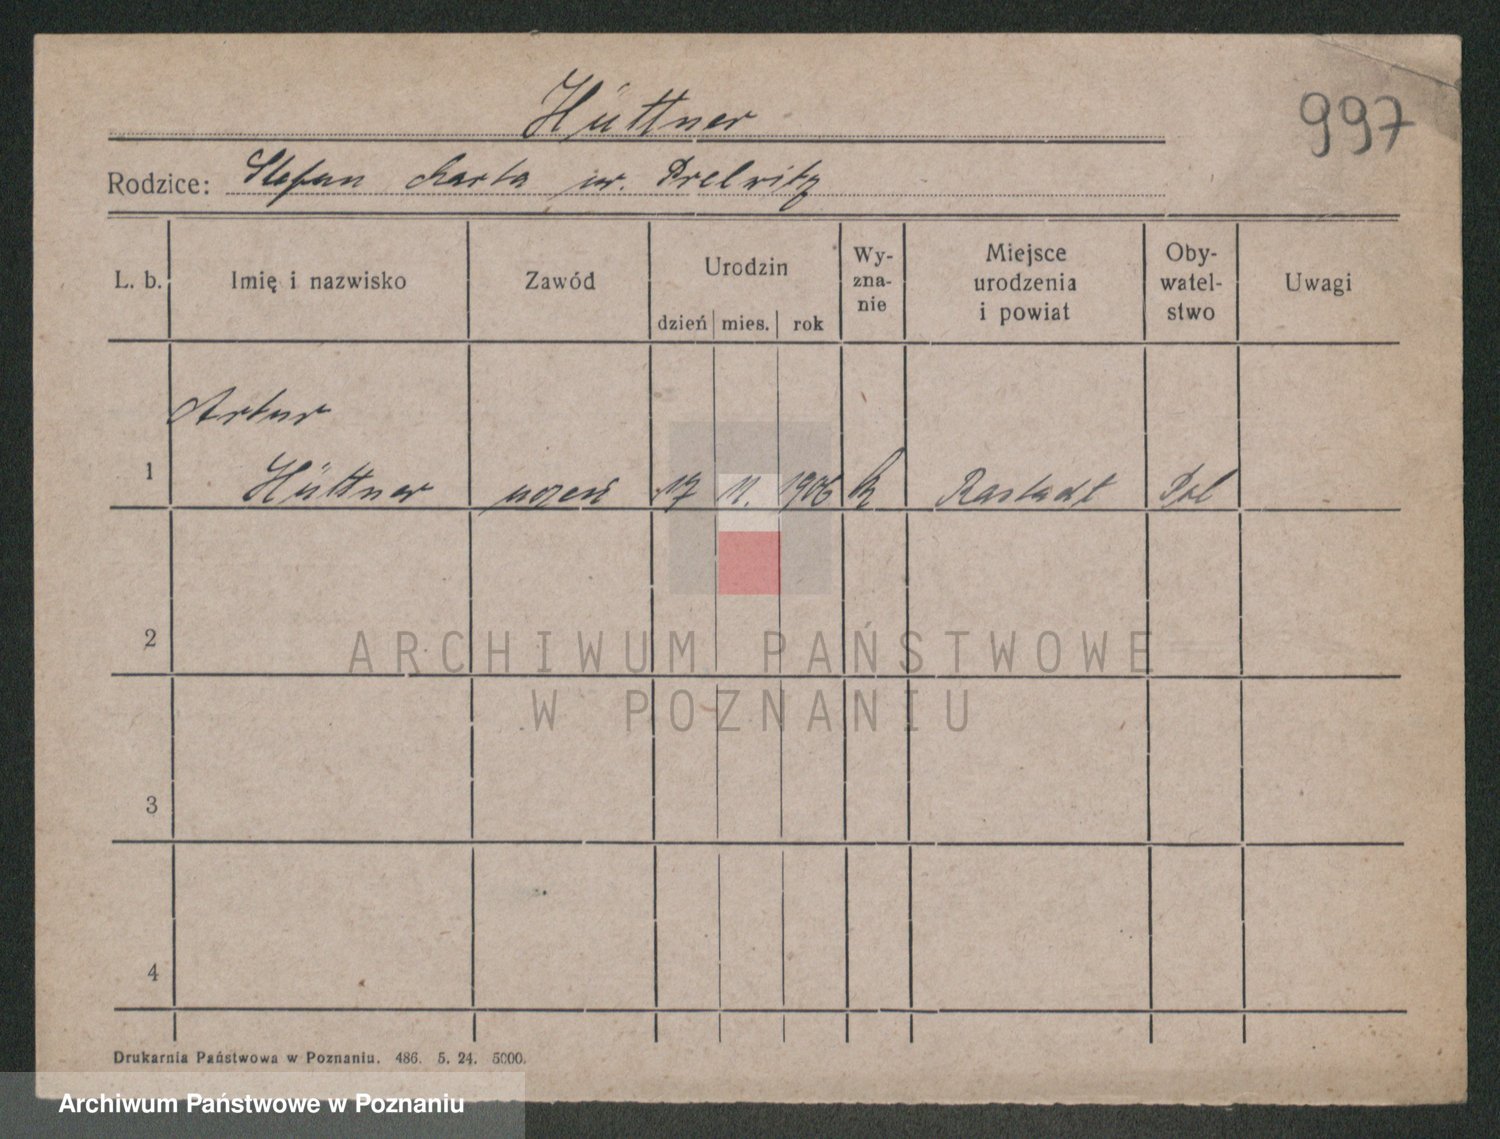 Hüttner
997
Rodzice: Stefan Marta ur. Prelwitz
L. b. Imię i nazwisko Zawód Urodzin dzień mies. rok Wy-zna-nie Miejsce urodzenia i powiat Oby-watel-stwo Uwagi
Artur
1 Hüttner uczeń 17 11. 1906 Rastadt Pol
2
ARCHIWUM PAŃSTWOWE
W POZNANIU
3
4
Drukarnia Państwowa w Poznaniu. 486. 5. 24. 5000.
Archiwum Państwowe w Poznaniu